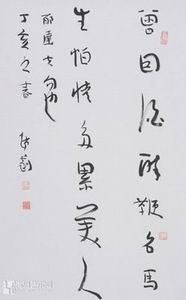 曾因酒醉鞭名马
生怕情多累美人
郁达夫句
丁亥之春